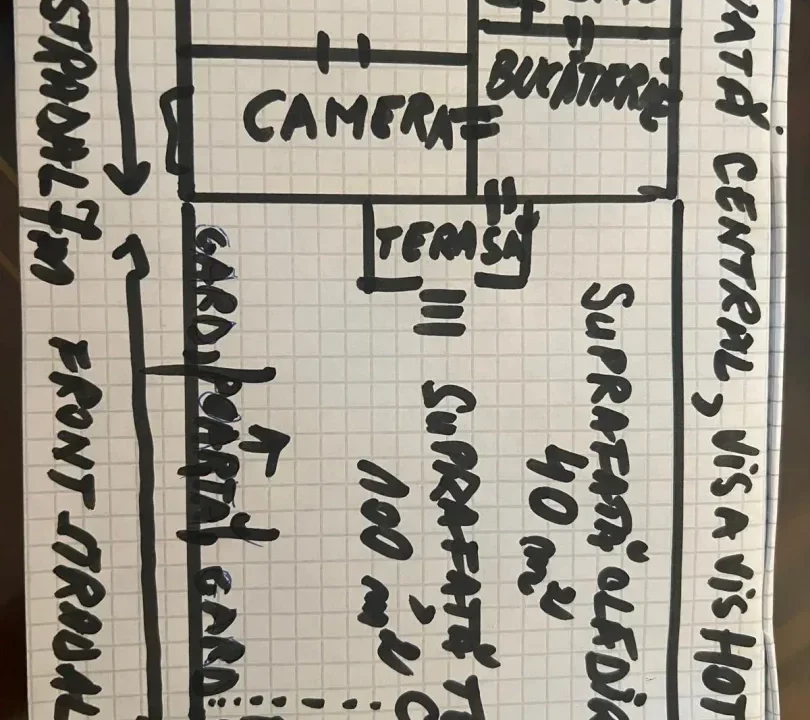 VATĂ CENTRAL, VIS A VIS HOT
BUCĂTĂRIE
SUPRAFATĂ CLĂDI
40 m²
CAMERA
TERASĂ
SUPRAFAȚĂ T
100 m²
GARD POARTĂ GARD
STRADAL 7m FRONT STRADAL